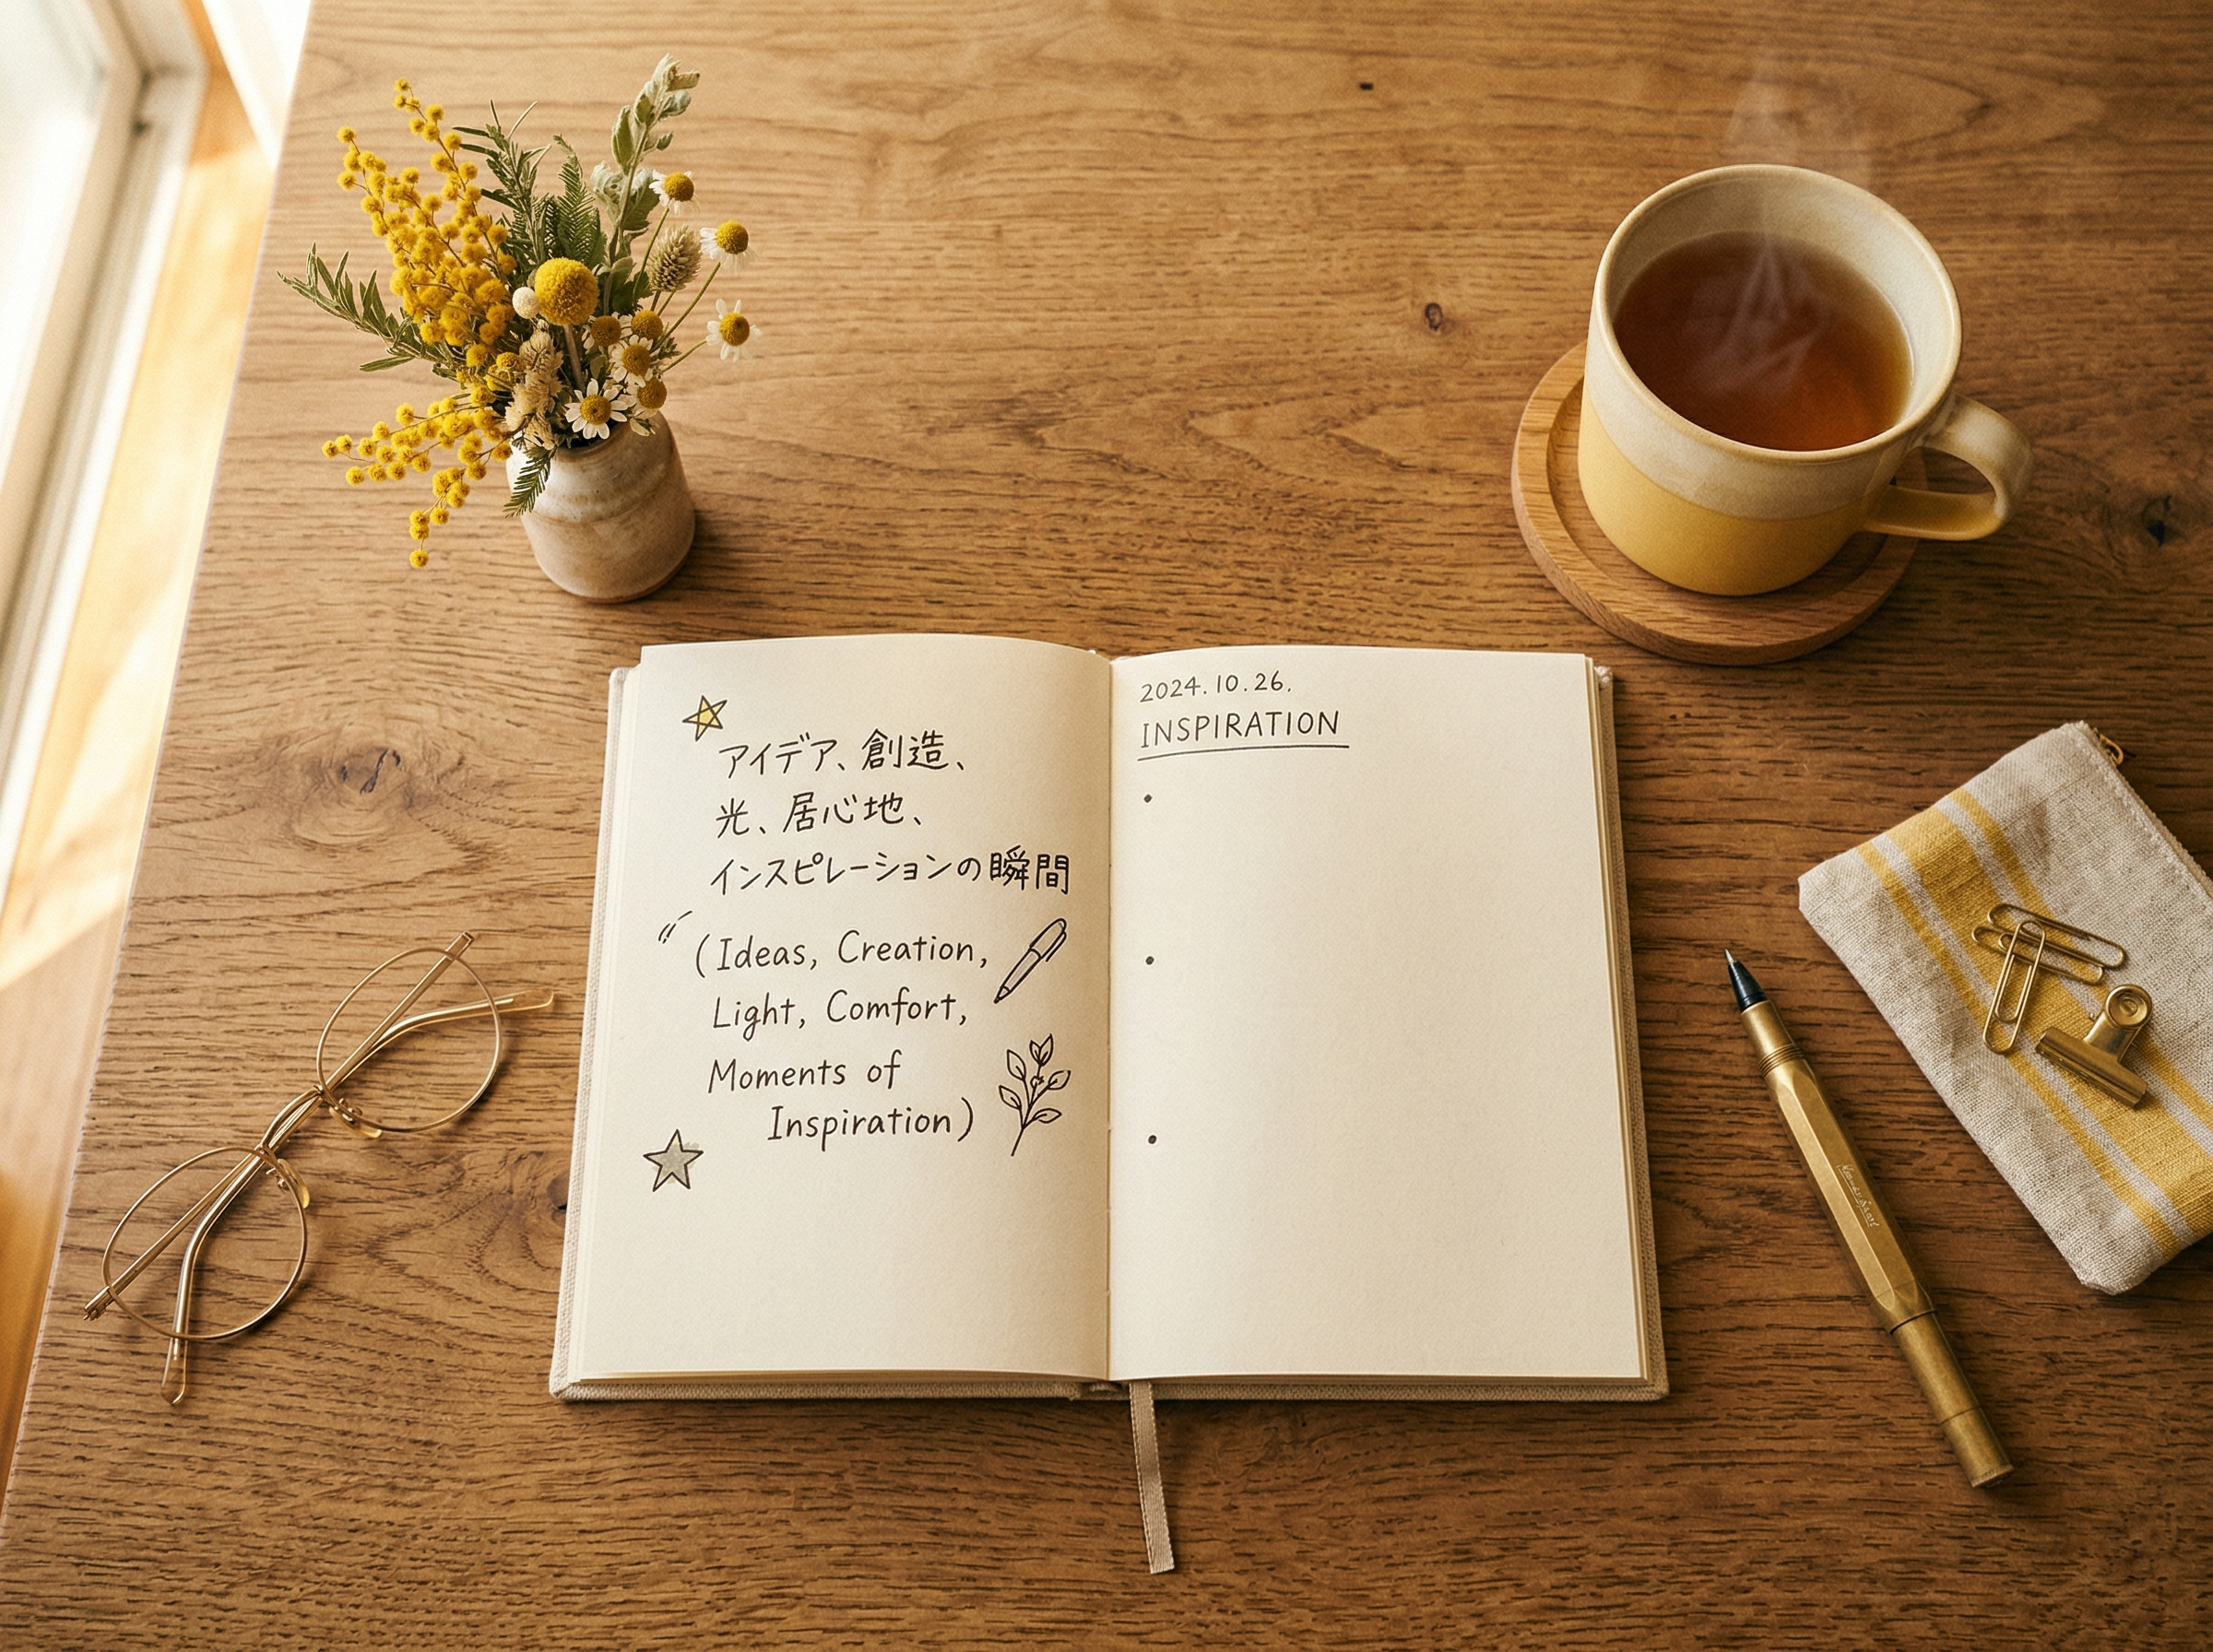 アイデア、創造、
光、居心地、
インスピレーションの瞬間
(Ideas, Creation,
Light, Comfort,
Moments of
Inspiration)
2024.10.26.
INSPIRATION